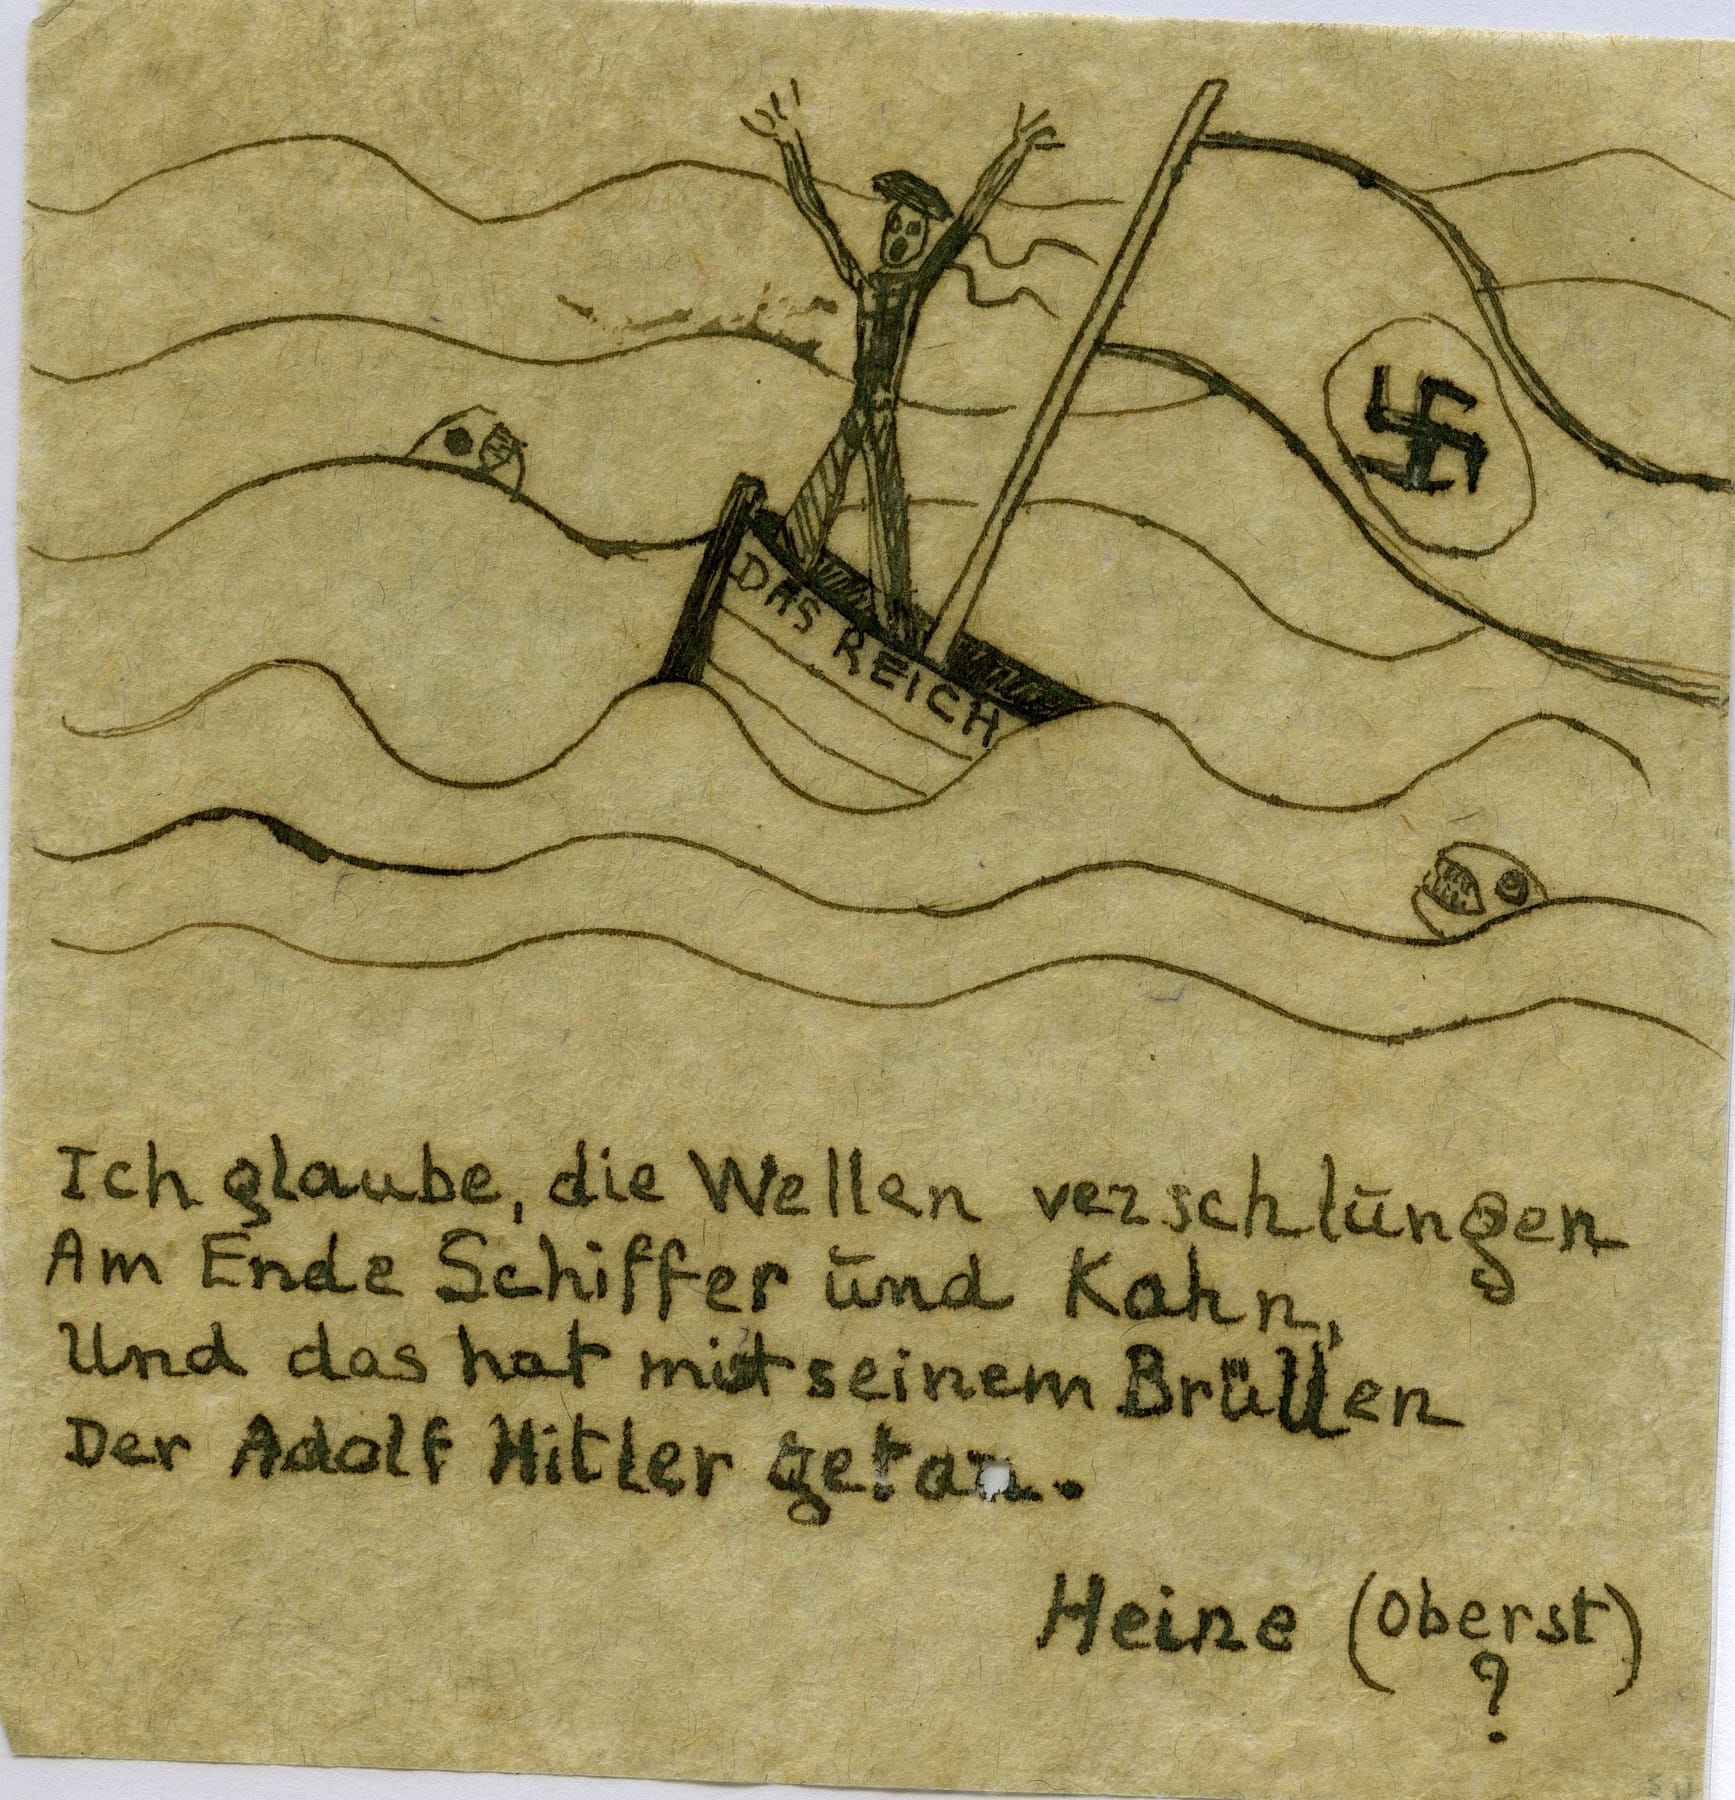 DAS REICH
Ich glaube, die Wellen verschlūngen
Am Ende Schiffer ūnd Kahn,
Und das hat mit seinem Brüllen
Der Adolf Hitler getan.
Heine (Oberst)
?